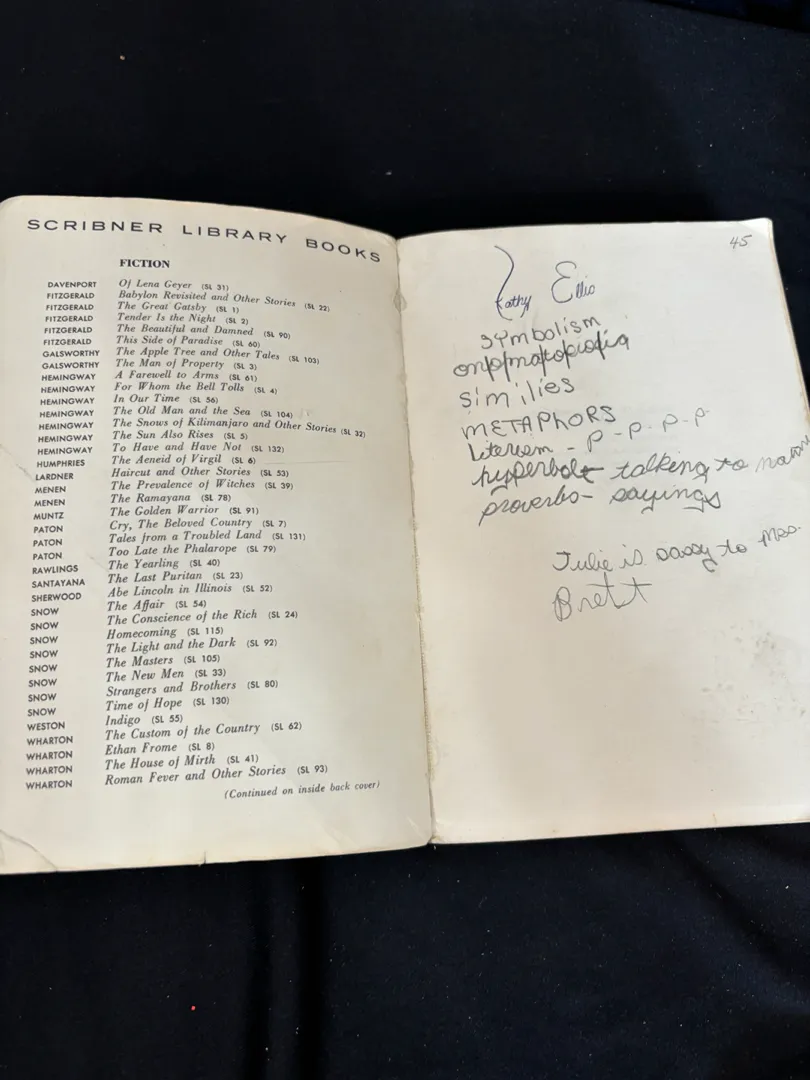 SCRIBNER LIBRARY BOOKS
FICTION
DAVENPORT Of Lena Geyer (SL 31)
FITZGERALD Babylon Revisited and Other Stories (SL 22)
FITZGERALD The Great Gatsby (SL 1)
FITZGERALD Tender Is the Night (SL 2)
FITZGERALD The Beautiful and Damned (SL 90)
FITZGERALD This Side of Paradise (SL 60)
GALSWORTHY The Apple Tree and Other Tales (SL 103)
GALSWORTHY The Man of Property (SL 3)
HEMINGWAY A Farewell to Arms (SL 61)
HEMINGWAY For Whom the Bell Tolls (SL 4)
HEMINGWAY In Our Time (SL 56)
HEMINGWAY The Old Man and the Sea (SL 104)
HEMINGWAY The Snows of Kilimanjaro and Other Stories (SL 32)
HEMINGWAY The Sun Also Rises (SL 5)
HEMINGWAY To Have and Have Not (SL 132)
HUMPHRIES The Aeneid of Virgil (SL 6)
LARDNER Haircut and Other Stories (SL 53)
MENEN The Prevalence of Witches (SL 39)
MENEN The Ramayana (SL 78)
MUNTZ The Golden Warrior (SL 91)
PATON Cry, The Beloved Country (SL 7)
PATON Tales from a Troubled Land (SL 131)
PATON Too Late the Phalarope (SL 79)
RAWLINGS The Yearling (SL 40)
SANTAYANA The Last Puritan (SL 23)
SHERWOOD Abe Lincoln in Illinois (SL 52)
SNOW The Affair (SL 54)
SNOW The Conscience of the Rich (SL 24)
SNOW Homecoming (SL 115)
SNOW The Light and the Dark (SL 92)
SNOW The Masters (SL 105)
SNOW The New Men (SL 33)
SNOW Strangers and Brothers (SL 80)
SNOW Time of Hope (SL 130)
WESTON Indigo (SL 55)
WHARTON The Custom of the Country (SL 62)
WHARTON Ethan Frome (SL 8)
WHARTON The House of Mirth (SL 41)
WHARTON Roman Fever and Other Stories (SL 93)
(Continued on inside back cover)
45
Kathy Ellis
symbolism
similies
METAPHORS
- P-P-P-P
talking to
proverbs- sayings
Julie is sassy to Mrs.
Brett